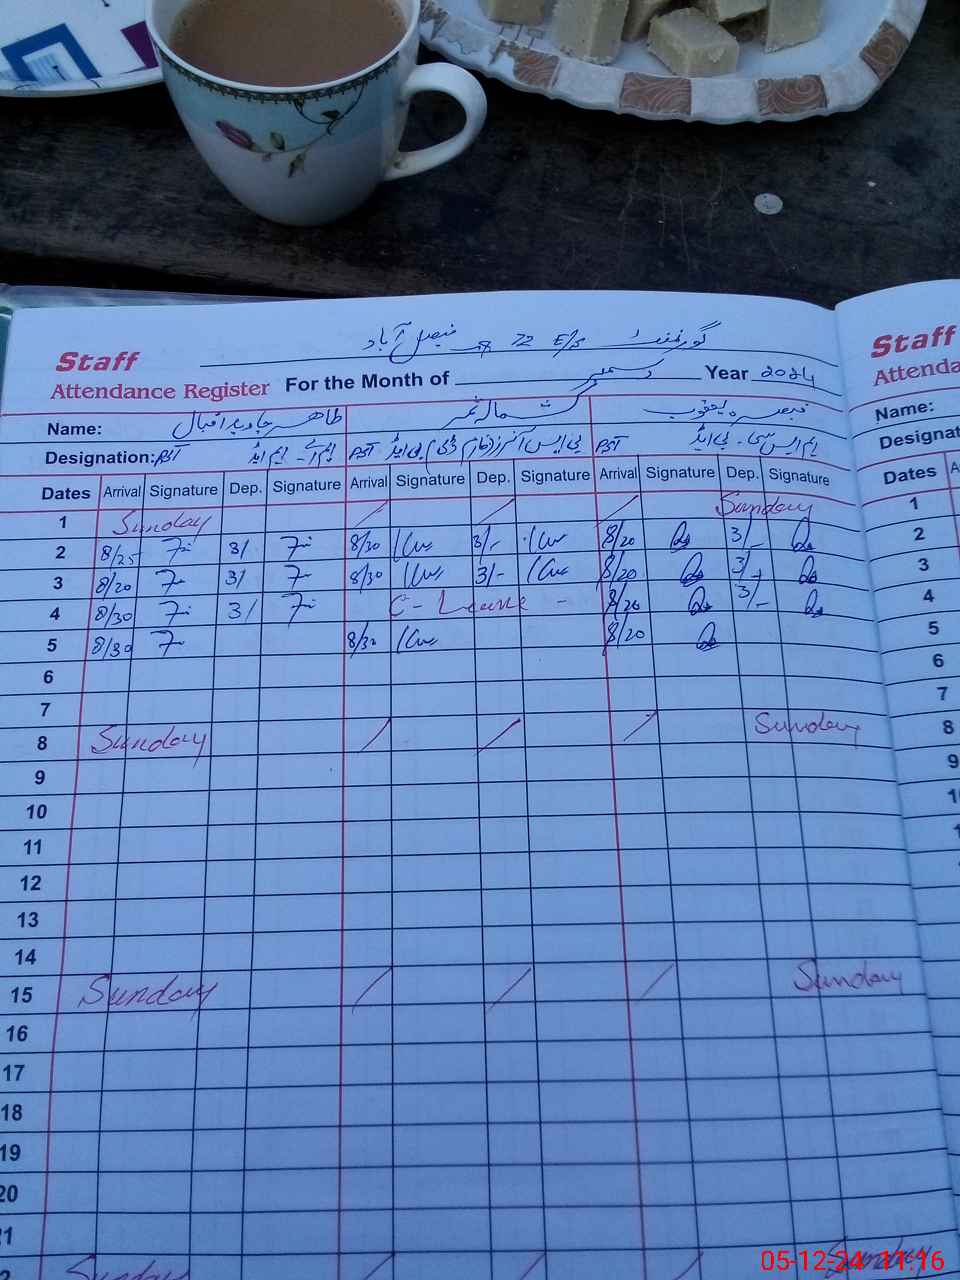 گورنمنٹ E/S 72 فیصل آباد
Staff
Attendance Register For the Month of دسمبر Year 2024
Name: طاہر جاوید اقبال شمائلہ ثمر قیصرہ یعقوب
Designation: PST ایم اے۔ ایم ایڈ PST بی ایس آنرز بی ایڈ PST ایم ایس سی۔ بی ایڈ
Dates Arrival Signature Dep. Signature Arrival Signature Dep. Signature Arrival Signature Dep. Signature
1 Sunday / / / Sunday
2 8/25 3/ 8/30 3/- 8/20 3/-
3 8/20 3/ 8/30 3/- 8/20 3/-
4 8/30 3/ C-Leave - 8/20 3/-
5 8/30 8/30 8/20
6
7
8 Sunday / / / Sunday
9
10
11
12
13
14
15 Sunday / / / Sunday
16
17
18
19
20
21
Sunday Sunday
Staff
Attenda
Name:
Designat
Dates A
1
2
3
4
5
6
7
8
9
10
05-12-24 11:16